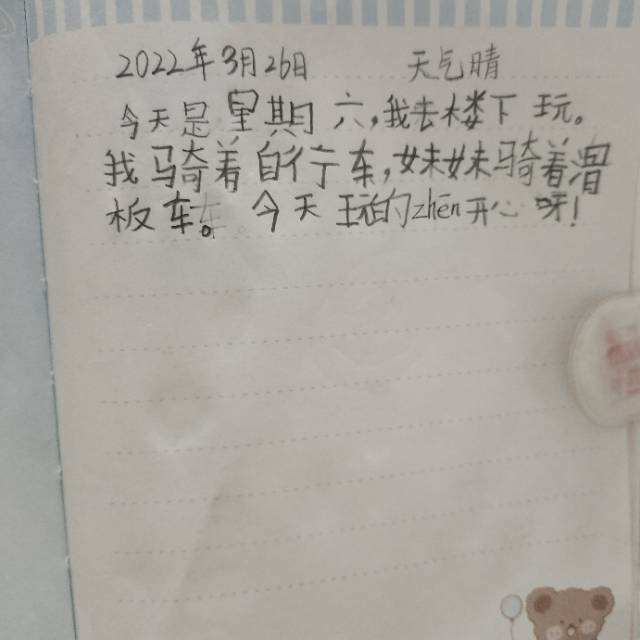 2022年3月26日 天气晴
今天是星期六，我去楼下玩。
我骑着自行车，妹妹骑着滑
板车。今天玩的zhen开心呀！